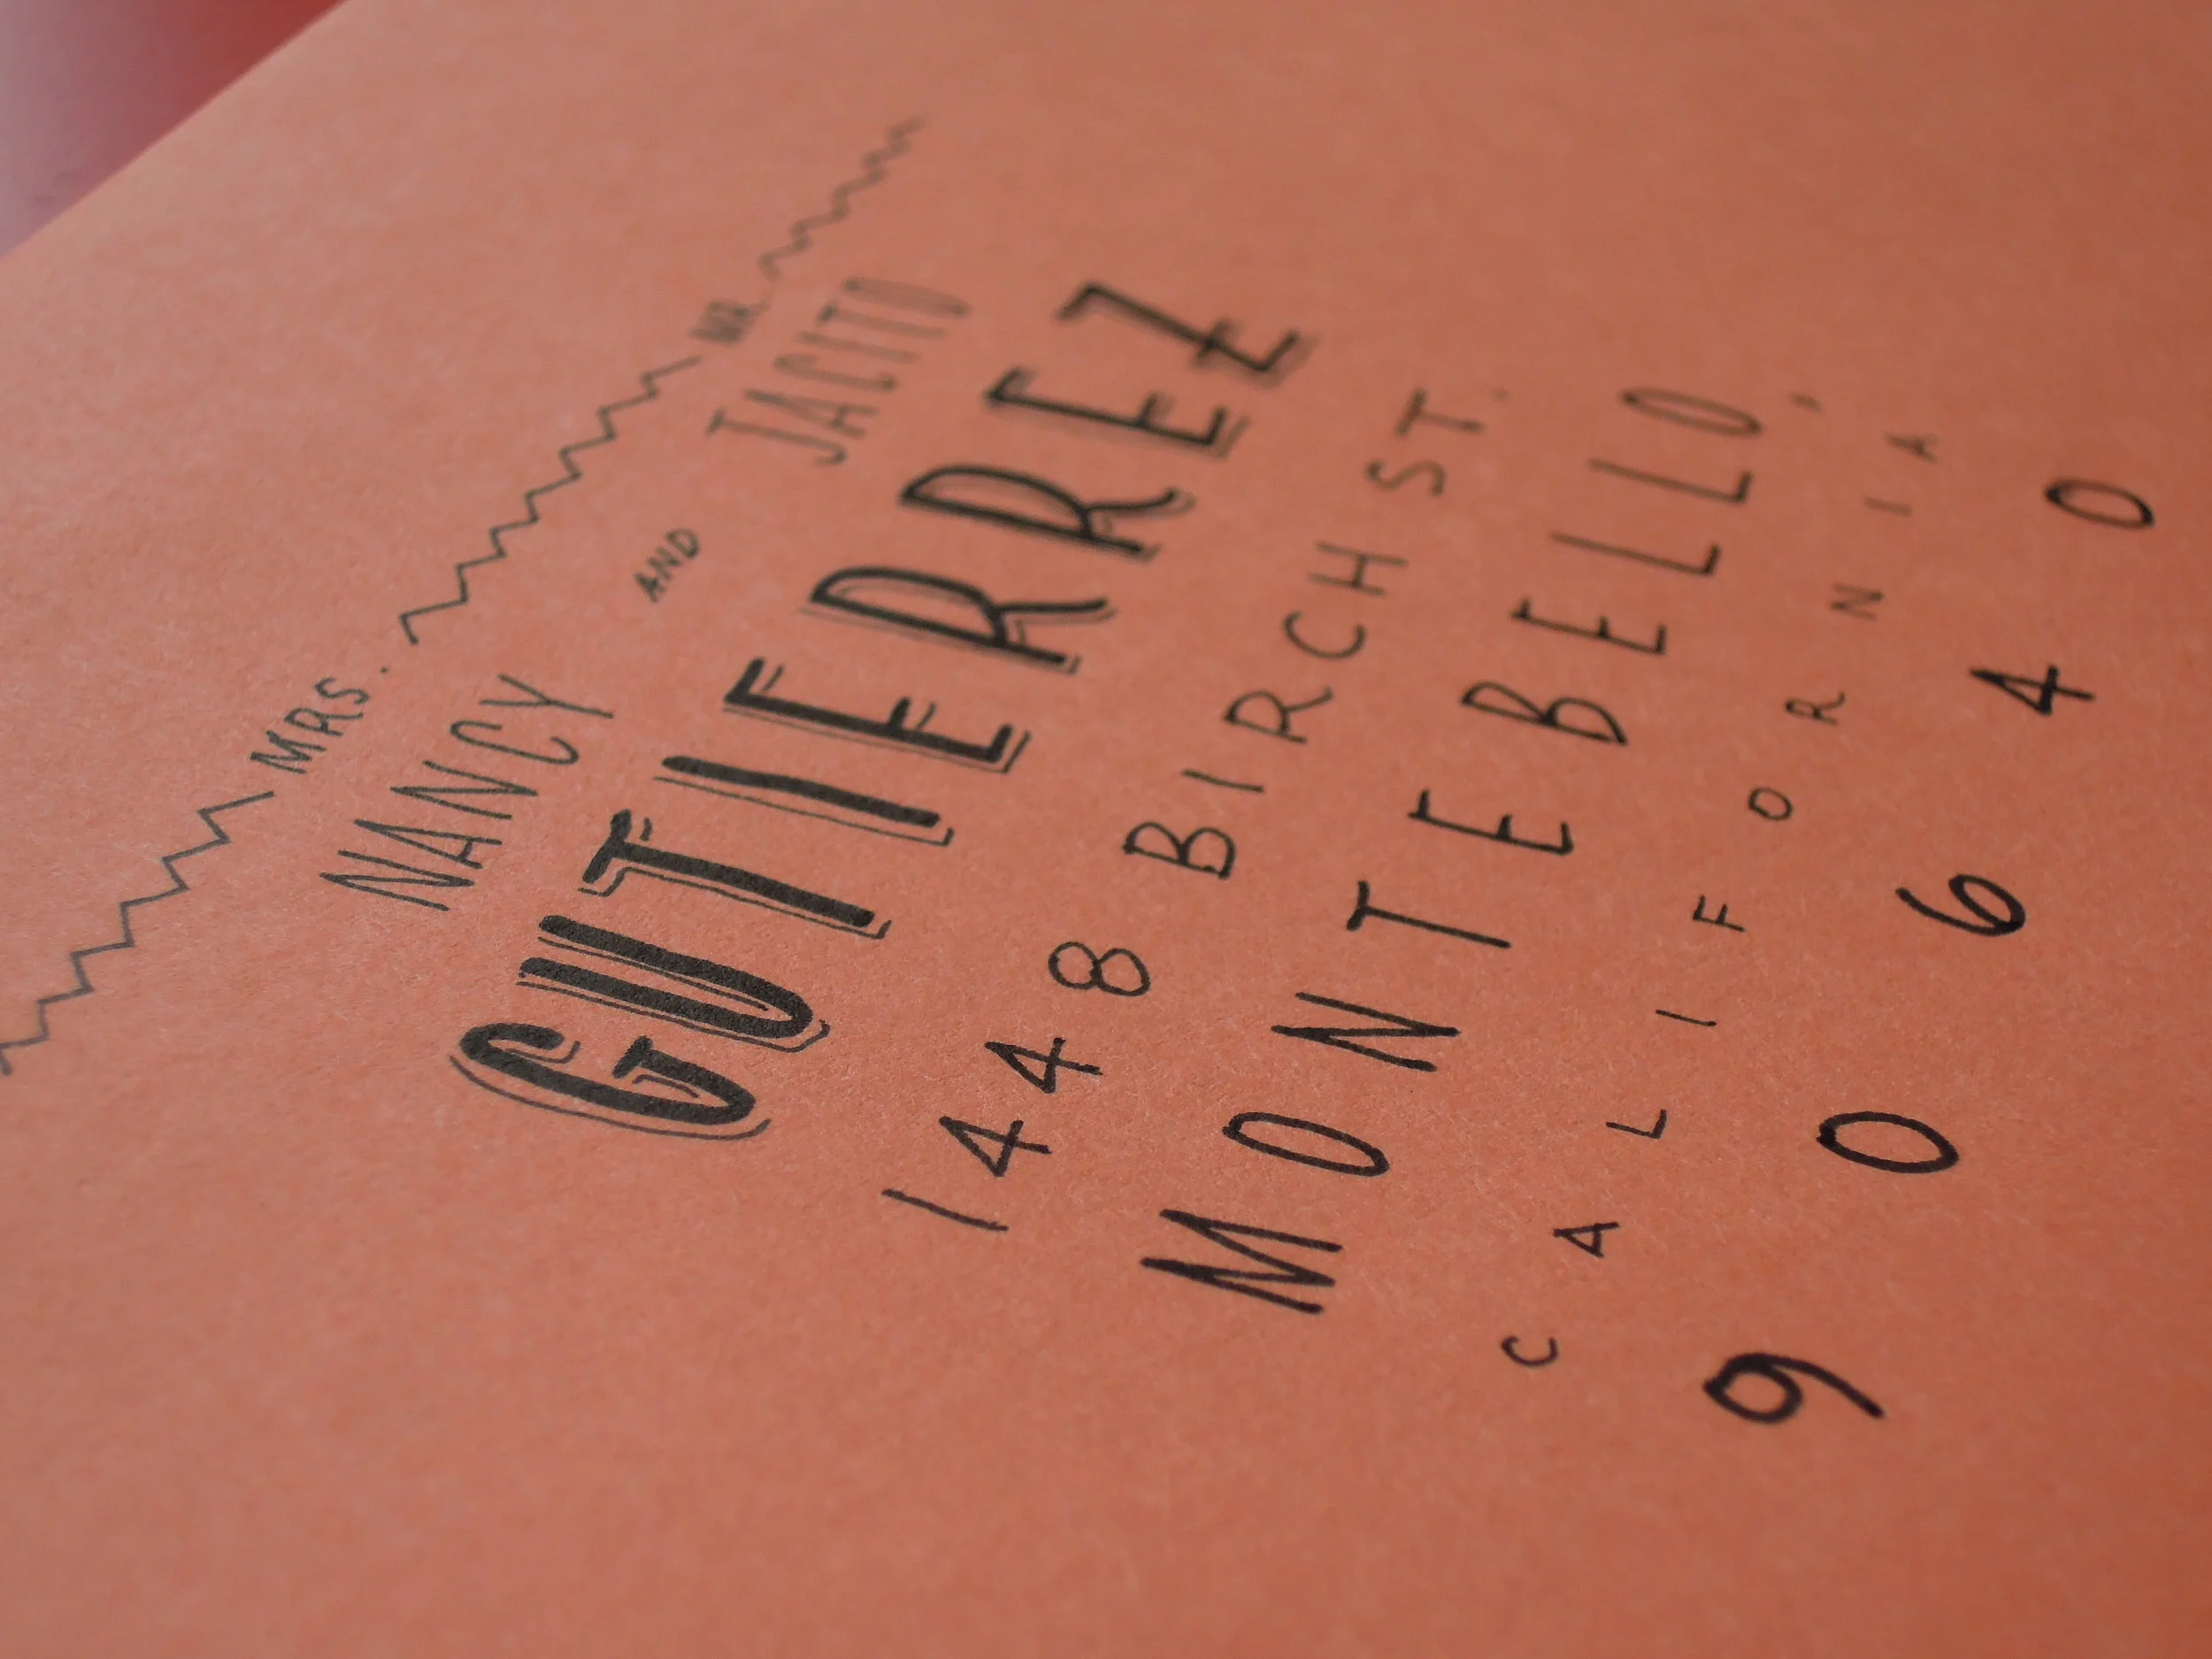 MRS. MR.
NANCY AND JACITO
GUTIERREZ
1448 BIRCH ST.
MONTEBELLO,
CALIFORNIA
90640